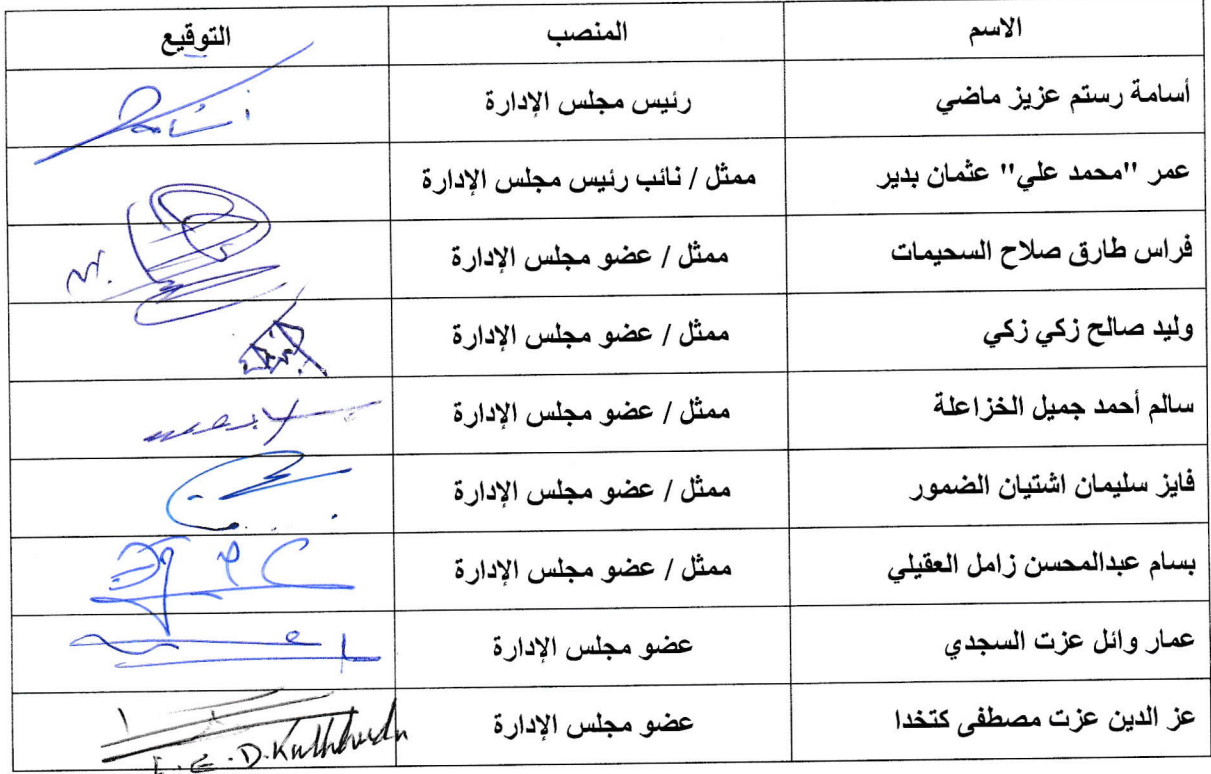 الاسم المنصب التوقيع
أسامة رستم عزيز ماضي رئيس مجلس الإدارة
عمر "محمد علي" عثمان بدير ممثل / نائب رئيس مجلس الإدارة
فراس طارق صلاح السحيمات ممثل / عضو مجلس الإدارة
وليد صالح زكي زكي ممثل / عضو مجلس الإدارة
سالم أحمد جميل الخزاعلة ممثل / عضو مجلس الإدارة
فايز سليمان اشتيان الضمور ممثل / عضو مجلس الإدارة
بسام عبدالمحسن زامل العقيلي ممثل / عضو مجلس الإدارة
عمار وائل عزت السجدي عضو مجلس الإدارة
عز الدين عزت مصطفى كتخدا عضو مجلس الإدارة